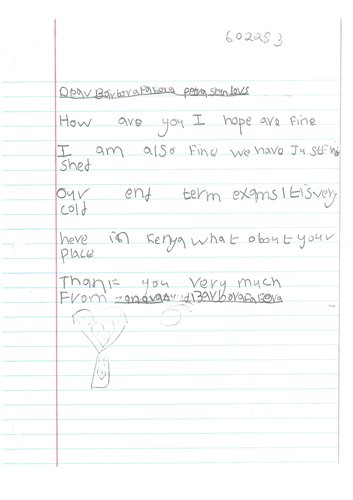 602253
Dear Barbora Fabera
How are you I hope are Fine
I am also Fine we have Justfini
shed
our end term exams Itisvery
cold
here in Kenya what about your
place
Thank you very much
From Barbora Fabera